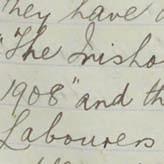 They have
"The Irish
1908" and th
Labourers